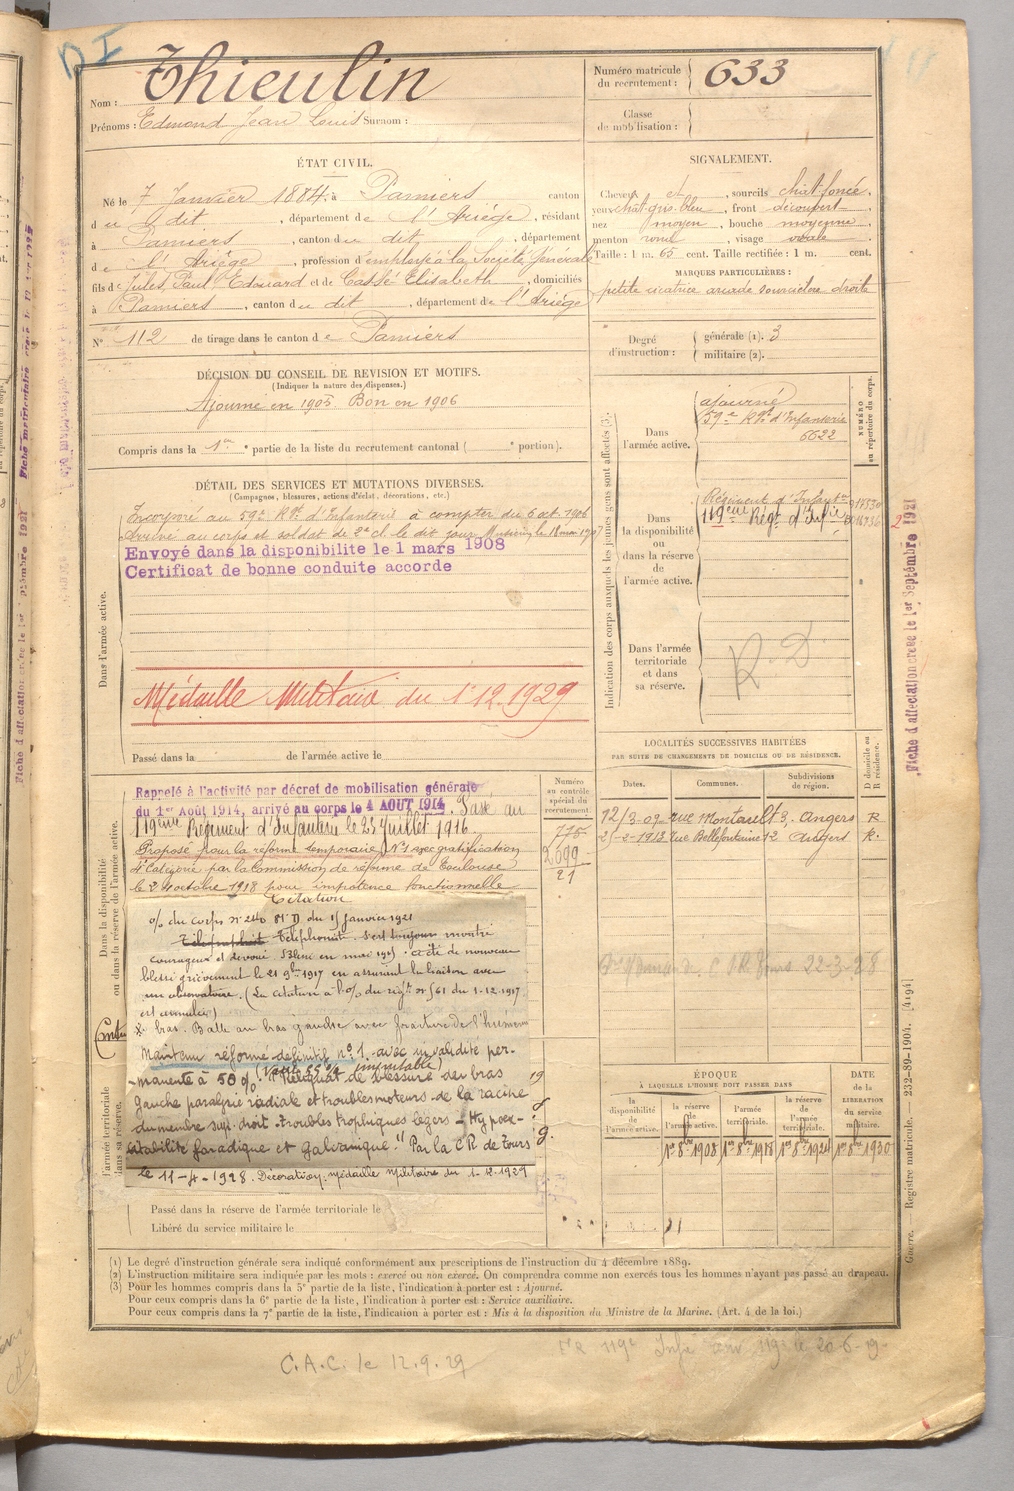 D I
Nom : Thieulin
Prénoms : Edmond Jean Louis Surnom :
Numéro matricule du recrutement : 633
Classe de mobilisation :
ÉTAT CIVIL.
Né le 7 Janvier 1884, à Pamiers canton
du dit, département de l'Ariège, résidant
à Pamiers, canton du dit, département
de l'Ariège, profession d'employé à la Société Générale
fils de Jules, Paul Edouard et de Cassé Elisabeth, domiciliés
à Pamiers, canton du dit, département de l'Ariège
N° 112 de tirage dans le canton de Pamiers
SIGNALEMENT.
Cheveux et, sourcils chât-foncé.
yeux chât-gris-bleu, front découvert
nez moyen, bouche moyenne
menton rond, visage ovale
Taille : 1 m. 65 cent. Taille rectifiée : 1 m. cent.
MARQUES PARTICULIÈRES :
petite cicatrice arcade sourcilière droite
Degré d'instruction : générale (1). 3
militaire (2).
DÉCISION DU CONSEIL DE REVISION ET MOTIFS.
(Indiquer la nature des dispenses.)
Ajourné en 1905 Bon en 1906
Compris dans la 1re partie de la liste du recrutement cantonal ( e portion).
DÉTAIL DES SERVICES ET MUTATIONS DIVERSES.
(Campagnes, blessures, actions d'éclat, décorations, etc.)
Dans l'armée active.
Incorporé au 59e Rgt d'Infanterie à compter du 6 oct. 1906
Arrivé au corps et soldat de 2e cl. le dit jour. Musicien le 18 mai 1907
Envoyé dans la disponibilite le 1 mars 1908
Certificat de bonne conduite accorde
Médaille Militaire du 1.12.1929
Passé dans la de l'armée active le
Indication des corps auxquels les jeunes gens sont affectés (3).
NUMÉRO au répertoire du corps.
Dans l'armée active.
ajourné
59e Rgt d'Infanterie
6622
Dans la disponibilité ou dans la réserve de l'armée active.
Régiment d'Infanterie
119ème Régt d'Infie
Dans l'armée territoriale et dans sa réserve.
R.D
Fiche d'affectation creee le 1er Septembre 1921
LOCALITÉS SUCCESSIVES HABITÉES
PAR SUITE DE CHANGEMENTS DE DOMICILE OU DE RÉSIDENCE.
Dates. Communes. Subdivisions de région. D domicile ou R résidence.
12/3-09- rue Montault 3. Angers R
-2-1913 rue Bellefontaine 12 Angers R.
22-3-28
Dans la disponibilité ou dans la réserve de l'armée active.
Numéro au contrôle spécial du recrutement.
775
2099
21
Rappelé à l'activité par décret de mobilisation générale
du 1er Août 1914, arrivé au corps le 4 AOUT 1914. Passé au
119ème Régiment d'Infanterie le 23 Juillet 1916
Proposé pour la réforme temporaire N°1 avec gratification
4e Catégorie par la Commission de réforme de Toulouse
le 24 octobre 1918 pour impotence fonctionnelle
Citation
% du corps n° 240 du 15 janvier 1921
Téléphoniste. S'est toujours montré
courageux et dévoué. Blessé en mai 1915. a été de nouveau
blessé grièvement le 21 9bre 1917 en assurant la liaison avec
un observatoire. (La citation à l'% du régt n° 561 du 1-12-1917
est annulée)
bras. Balle au bras gauche avec fracture de l'humérus
Maintenu réformé définitif n° 1 avec invalidité per-
manente à 50 % (imputable) Reliquat de blessure du bras
gauche paralysie radiale et troubles moteurs de la racine
du membre sup. droit - troubles trophiques légers - Hypoex-
citabilité faradique et galvanique" Par la C R de Tours
le 11-4-1928. Décoration. médaille militaire du 1-12-1929
l'armée territoriale dans sa réserve.
Passé dans la réserve de l'armée territoriale le
Libéré du service militaire le
ÉPOQUE
À LAQUELLE L'HOMME DOIT PASSER DANS
la disponibilité de l'armée active. la réserve de l'armée active. l'armée territoriale. la réserve de l'armée territoriale. DATE de la LIBÉRATION du service militaire.
1er 8bre 1908 1er 8bre 1918 1er 8bre 1924 1er 8bre 1930
(1) Le degré d'instruction générale sera indiqué conformément aux prescriptions de l'instruction du 4 décembre 1889.
(2) L'instruction militaire sera indiquée par les mots : exercé ou non exercé. On comprendra comme non exercés tous les hommes n'ayant pas passé au drapeau.
(3) Pour les hommes compris dans la 5e partie de la liste, l'indication à porter est : Ajourné.
Pour ceux compris dans la 6e partie de la liste, l'indication à porter est : Service auxiliaire.
Pour ceux compris dans la 7e partie de la liste, l'indication à porter est : Mis à la disposition du Ministre de la Marine. (Art. 4 de la loi.)
Guerre. — Registre matricule. — 232-89-1904. [4194]
C.A.C. le 12.9.29
119e Infie 119e le 20-6-19